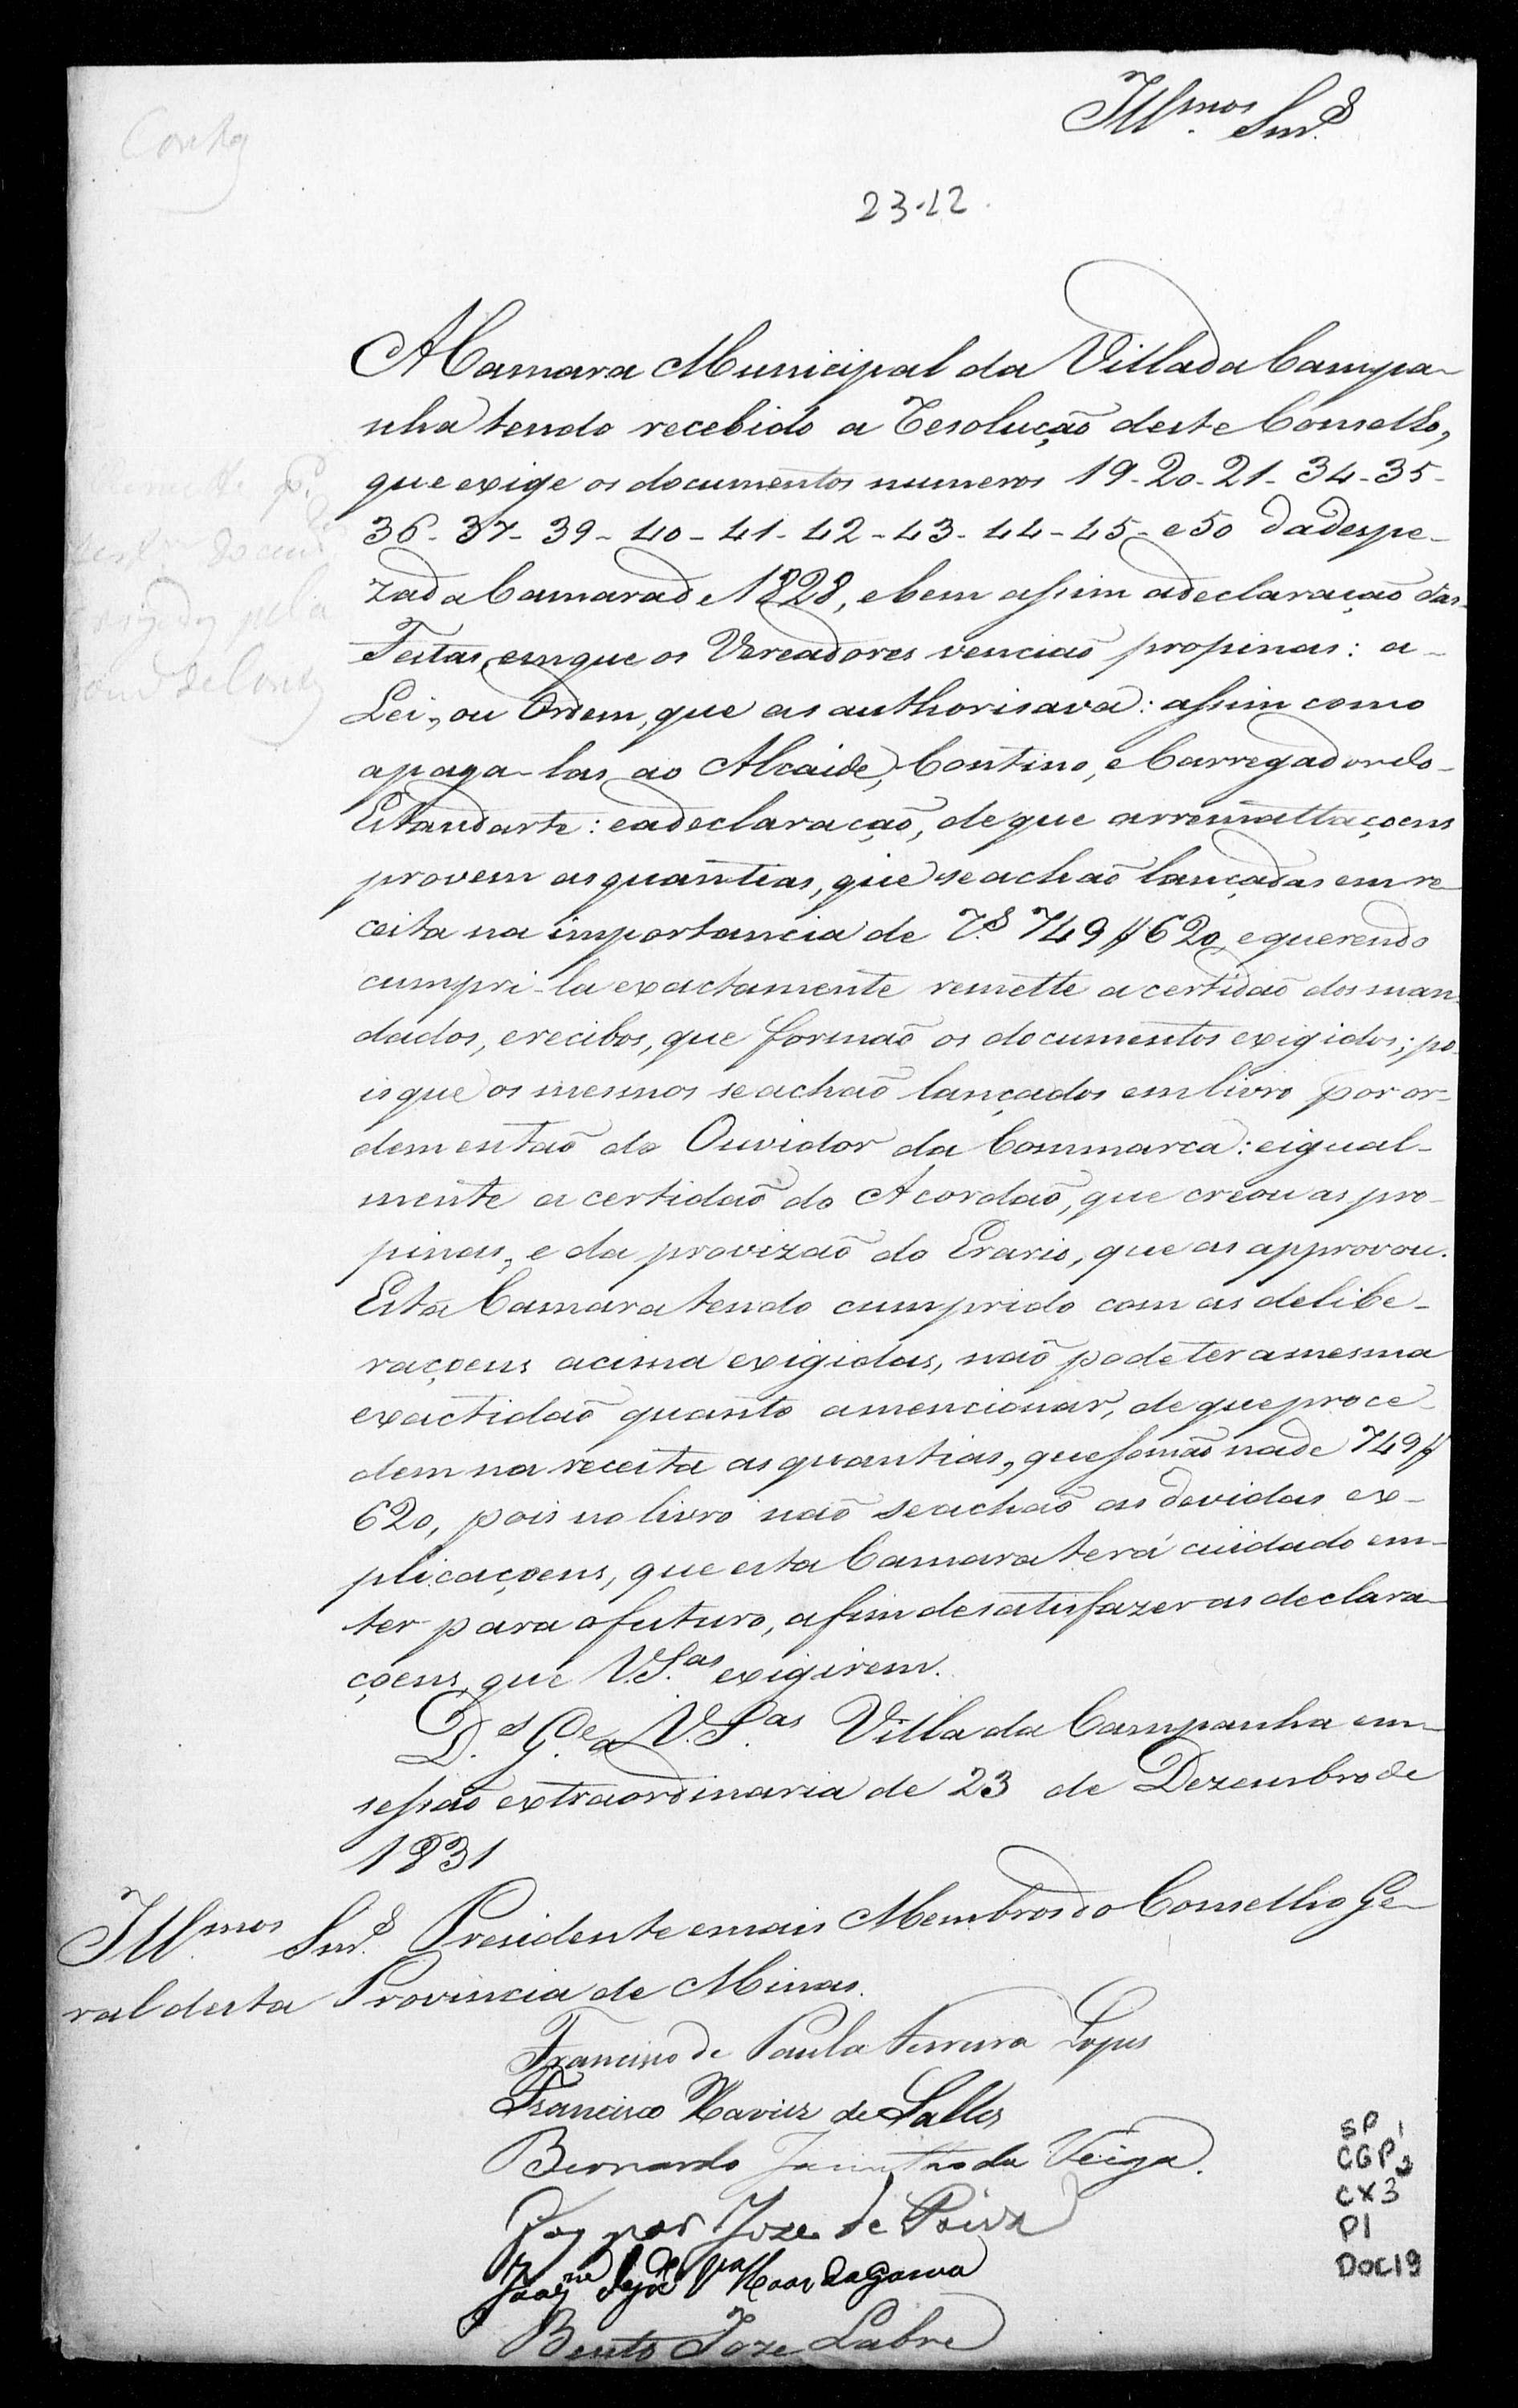 Ill.mos Snr.s
23-12
A Camara Municipal da Villa da Campa-
nha tendo recebido a Resolução deste Conselho,
que exige os documentos numeros 19-20-21-34-35-
36-37-39-40-41-42-43-44-45-e50 da despe-
za da Camara de 1828, e bem assim a declaração das
Festas, em que os Vereadores vencião propinas: a
Lei, ou Ordem, que as authorisava: assim como
a paga-las ao Alcaide, Contino, e Carregador do
Estandarte: e a declaração, de que arremattaçoens
provem as quantias, que se achão lançadas em re-
ceita na importancia de R.s 749$620, e querendo
cumpri-la exactamente remette a certidão dos man-
dados, e recibos, que formão os documentos exigidos; po-
is que os mesmos se achão lançados em livro por or-
dem então do Ouvidor da Commarca: e igual-
mente a certidão do Acordão, que creou as pro-
pinas, e da provizão do Erario, que as approvou.
Esta Camara tendo cumprido com as delibe-
raçoens acima exigidas, não pode ter a mesma
exactidão quanto a mencionar, de que proce-
dem na receita as quantias, que somão na de 749$
620, pois no livro não se achão as devidas ex-
plicaçoens, que esta Camara terá cuidado em
ter para o futuro, a fim de satisfazer as declara-
çoens, que V.S.as exigirem.
D.s G.e a V.S.as Villa da Campanha em
sessão extraordinaria de 23 de Dezembro de
1831
Ill.mos Snr.s Presidente e mais Membros do Conselho Ge-
ral desta Provincia de Minas.
Francisco de Paula Ferreira Lopes
Francisco Xavier de Salles
Bernardo Jacintho da Veiga.
Joze de Paiva
da Gama
Bento Joze Labre
SP 1
CGP3
CX3
P1
DOC19